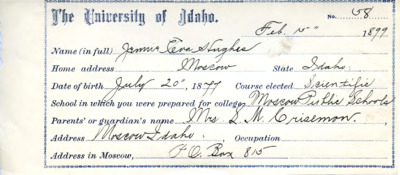 The University of Idaho.
No. 58
Feb. 1899
Name (in full) Eva Hughes
Home address Moscow State Idaho.
Date of birth July 20" 1877 Course elected Scientific
School in which you were prepared for college, Moscow Public Schools
Parents' or guardian's name Mrs. D. M. Crisemon.
Address Moscow Idaho. Occupation
Address in Moscow, P.O. Box 815